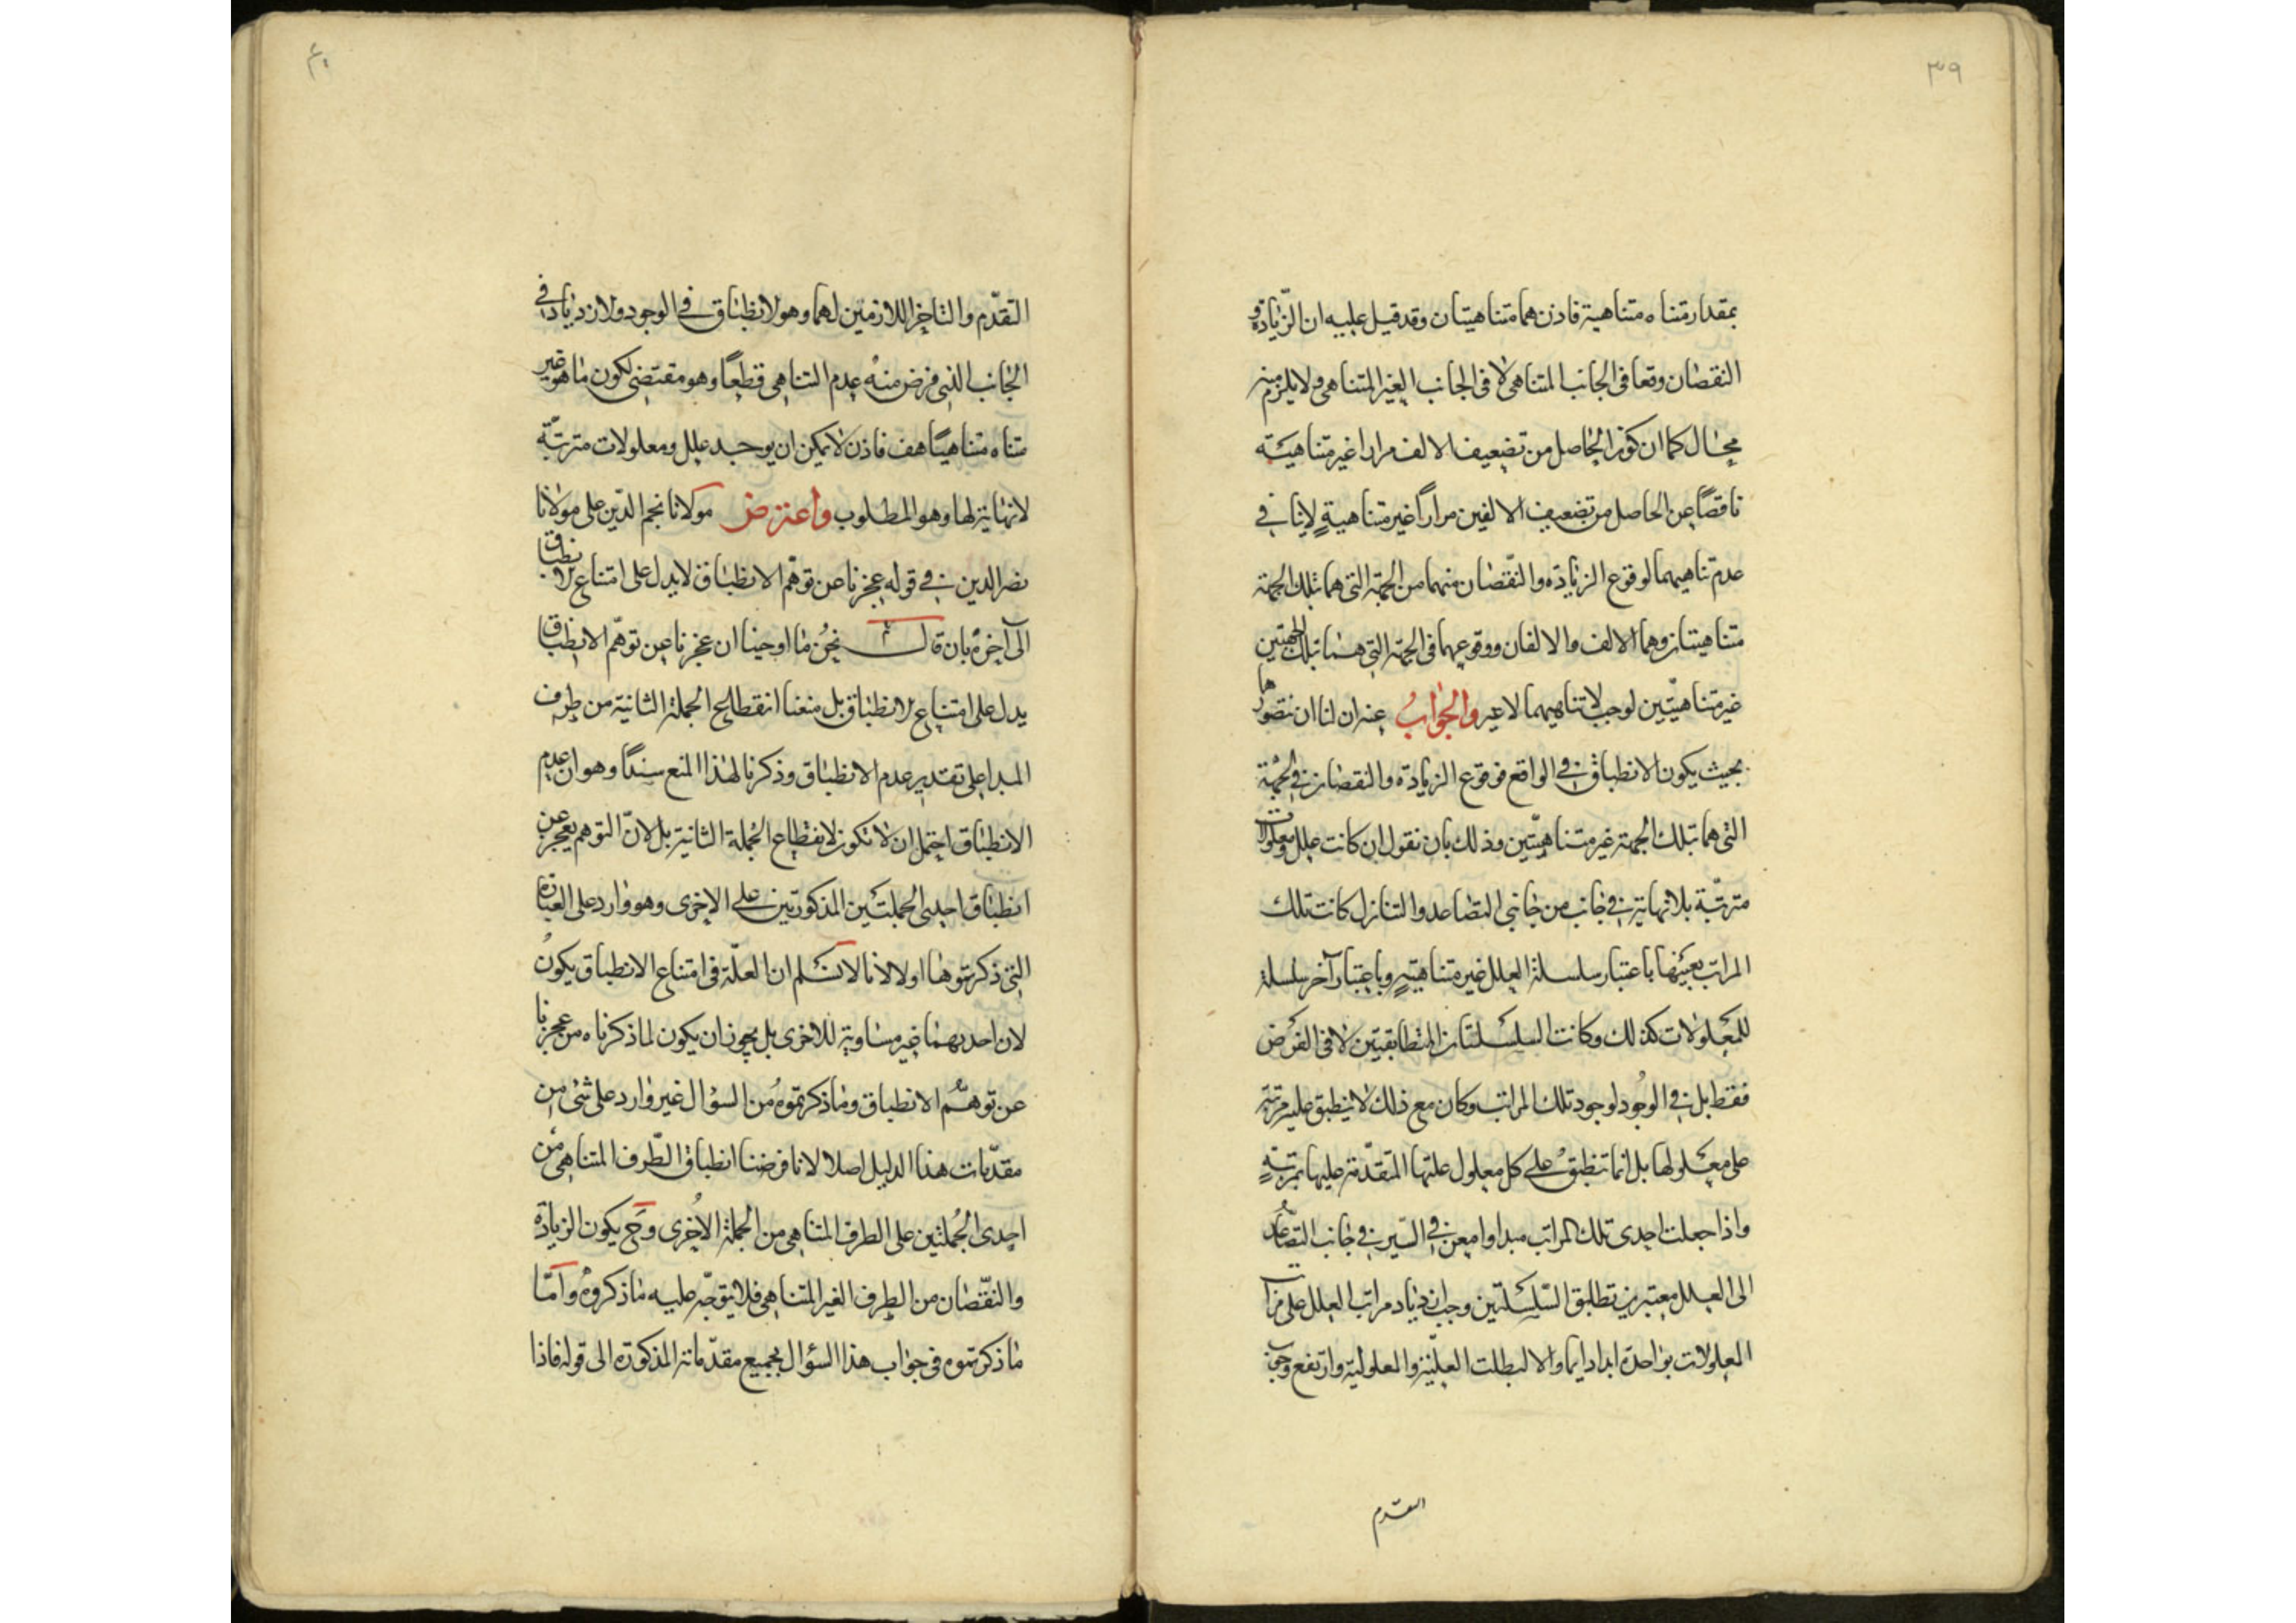 ٣٩
بمقدار متناه متناهية فاذن هما متناهيتان وقد قيل عليه ان الزّيادة و
النقصان وقعا فى الجانب المتناهى لا فى الجانب الغير المتناهى ولا يلزم منه
محال كما ان كون الحاصل من تضعيف الالف مرارا غير متناهية
ناقصًا عن الحاصل من تضعيف الالفين مرارًا غير متناهيةٍ لا ينافى
عدم تناهيهما لوقوع الزيادة والنقصان منهما من الجهة التى هما بتلك الجهة
متناهيتان وهما الالف والالفان ووقوعهما فى الجهة التى هما بتلك الجهتين
غير متناهيتين لوجب لا تناهيهما لا غير والجوابُ عنه ان لنا ان نتصورها
بحيث يكون الانطباق فى الواقع فوقوع الزيادة والنقصان فى الجهة
التى هما بتلك الجهة غير متناهيّتين وذلك بان نقول ان كانت علل ومعلولات
مترتّبة بلا نهاية فى جانب من جانبى التصاعد والتنازل كانت تلك
المراتب بعينها باعتبار سلسلة العلل غير متناهيةٍ وباعتبار آخر سلسلة
للمعلولات كذلك وكانت السلسلتان المتطابقتين لا فى الفرض
فقط بل فى الوجُود لوجود تلك المراتب وكان مع ذلك لا ينطبق علية مرتبة
على معلولها بل انما تنطبقُ على كل معلول علتها المتقدّمة عليها بمرتبةٍ
واذا جعلت احدى تلك المراتب مبدا وامعن فى السّير فى جانب التصاعد
الى العلل معتبرين تطابق السّلسلتين وجب ازدياد مراتب العلل على مرات
المعلولات بواحدة ابدا دايما والا لبطلت العليّة والمعلوليّة وارتفع وجوب
التقدم
٤٠
التقدّم والتاخر اللازمين لهما وهو لانطباق فى الوجود ولازدياد فى
الجانب الذى فرض منهُ عدم التناهى قطعًا وهو مقتضى لكون ما هو غير
متناه متناهيًا هف فاذن لا يمكن ان يوجد علل ومعلولات مترتبّة
لا نهاية لها وهو المطلوب واعترض مولانا نجم الدّين على مولانا
نصر الدين فى قوله عجزنا عن توهّم الانطباق لا يدل على امتناع الانطباق
الى آخره بان قال نحنُ ما اوحينا ان عجزنا عن توهّم الانطباق
يدل على امتناع الانطباق بل منعنا انقطاع الجملة الثانية من طرف
المبدا على تقدير عدم الانطباق وذكرنا لهذا المنع سندًا وهو ان عدم
الانطباق احتمل ان لا تكون لانقطاع الجُملة الثانية بل لانّ التوهم يعجز عن
انطباق احدى الجملتين المذكورتين على الاخرى وهو وارد على العبارة
التى ذكرتموها اولا لانا لا نسّلم ان العلّة فى امتناع الانطباق يكونُ
لان احديهما غير مساوية للاخرى بل يجوز ان يكون لما ذكرناه من عجزنا
عن توهّم الانطباق وما ذكرتموهُ من السؤال غير وارد على شئ من
مقدّمات هذا الدليل اصلا لانا فرضنا انطباق الطّرف المتناهى من
احدى الجُملتين على الطرف المتناهى من الجملة الاُخرى وح يكون الزيادة
والنقّصان من الطرف الغير المتناهى فلا يتوجّه عليه ما ذكروهُ وامّا
ما ذكرتموه فى جواب هذا السؤال بجميع مقدّماته المذكورة الى قوله فاذا